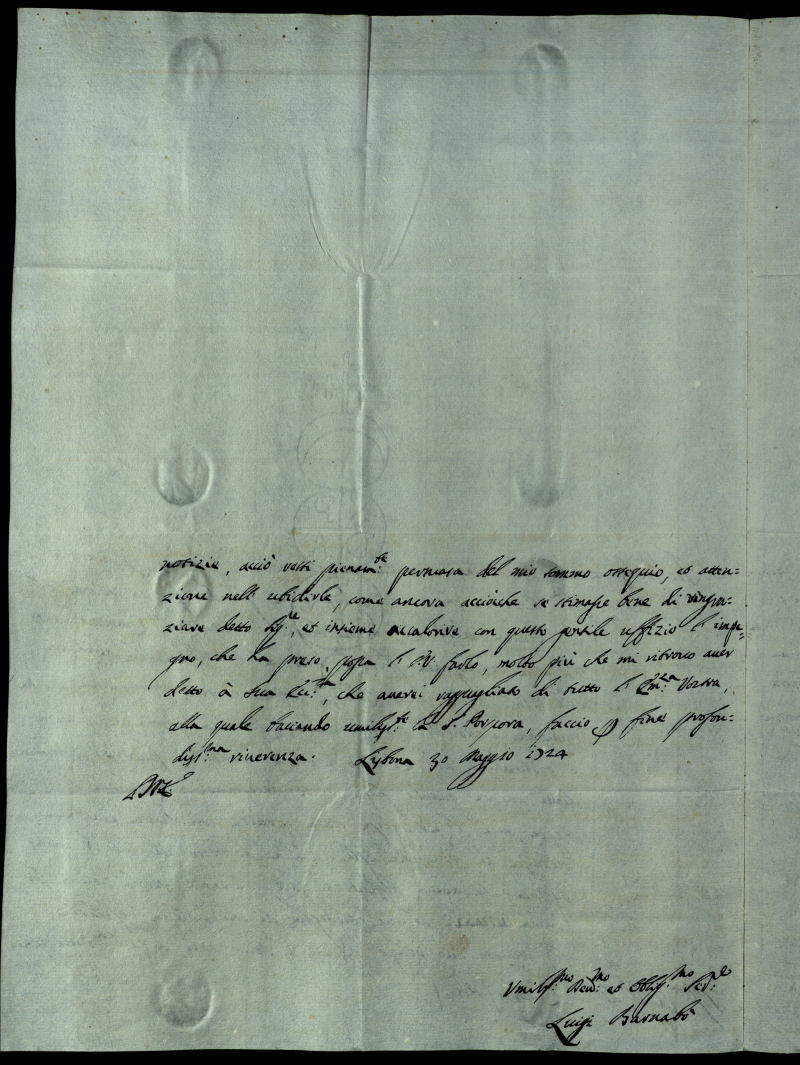 notizie, acciò resti pienam:te persuasa del mio sommo ossequio, et atten=
zione nell' ubidirle, come ancora acciòche se stimasse bene di ringra=
ziare detto Sig:re, et insieme accalorire con questo gentile uffizio l' impe=
gno, che ha preso, possa l' E.V. farlo, molto più che mi ritrovo aver
detto à Sua Ecc:za, che averei ragguagliato di tutto l' Em:za Vostra,
alla quale baciando umiliss:te la S. Porpora, faccio p fine profon=
diss:ma riverenza. Lisbona 30 Maggio 1724
Umiliss:mo Dev:mo et Obblig:mo Ser:re
Luigi Barnabò